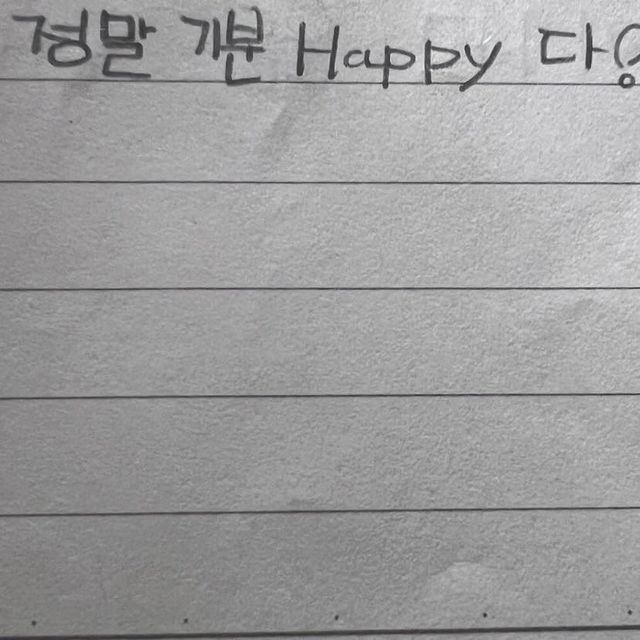 정말 기분 Happy 다